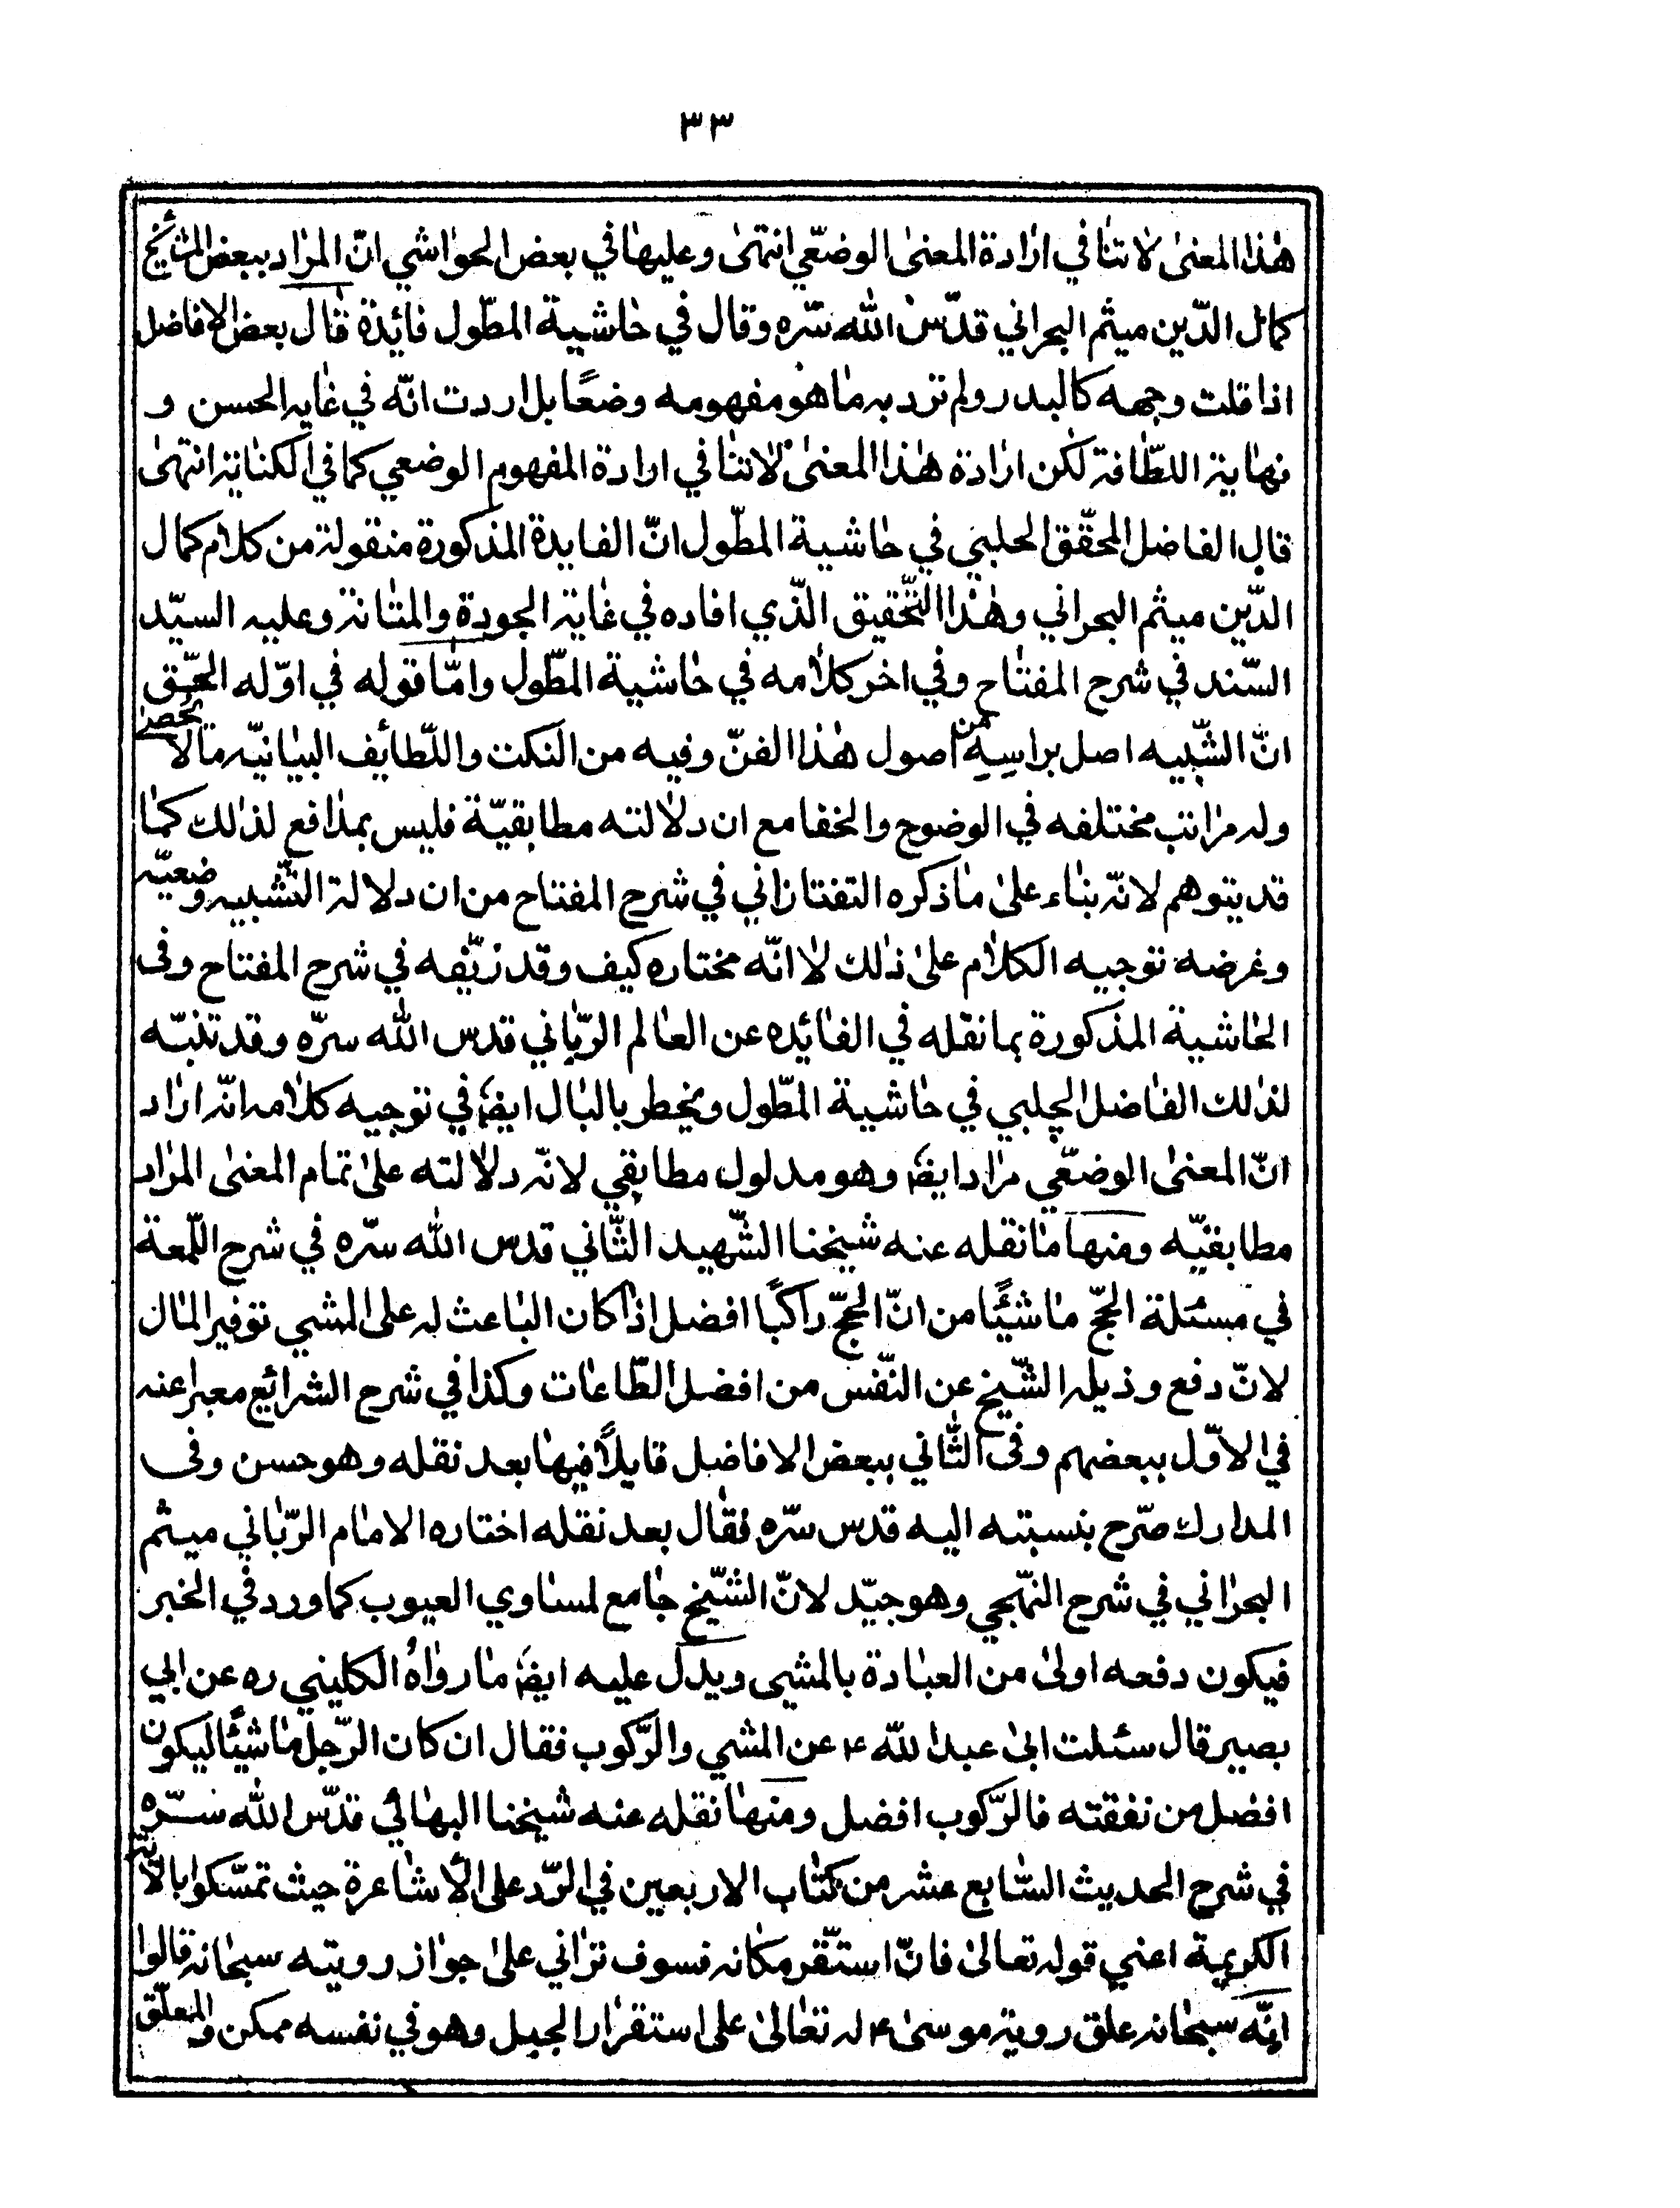 ٣٣
هٰذا المعنىٰ لاتنافي ارادة المعنىٰ الوضعّي انتهىٰ وعليها في بعض الحواشي انّ المراد ببعض المشايخ
كمال الدّين ميثم البحراني قدّس اللّٰه سّره وقال في حاشية المطّول فائدة قال بعض الافاضل
اذا قلت وجهه كالبدر ولم ترد به ما هو مفهومه وضعًا بل اردت انّه في غايه الحسن و
نهاية اللطّافة لكن ارادة هٰذا المعنىٰ لاتنافي ارادة المفهوم الوضعي كما في الكناية انتهىٰ
قال الفاضل المحقّق الچلبي في حاشية المطّول انّ الفايدة المذكورة منقولة من كلام كمال
الدّين ميثم البحراني وهٰذا التّحقيق الّذي افاده في غاية الجودة والمتانة وعليه السيّد
السّند في شرح المفتاح وفي اخر كلامه في حاشية المطّول وامّا قوله في اوّله الحّق
انّ التّشبيه اصل براسه من اصول هٰذا الفنّ وفيه من النكت واللّطائف البيانيّه مالا يحصىٰ
وله مراتب مختلفه في الوضوح والخفا مع ان دلالته مطابقيّة فليس بمدافع لذٰلك كما
قد يتوهم لانّه بناء علىٰ ما ذكره التفتازاني في شرح المفتاح من ان دلالة التّشبيه وضعيّه
وغرضه توجيه الكلام علىٰ ذٰلك لا انّه مختاره كيف وقد زيّفه في شرح المفتاح وفى
الحاشية المذكورة بما نقله في الفائده عن العالم الربّاني قدس اللّٰه سرّه وقد تنبّه
لذٰلك الفاضل الچلبي في حاشية المطّول ويخطر بالبال ايضًا في توجيه كلامه انّه اراد
انّ المعنىٰ الوضعّي مراد ايضًا وهو مدلول مطابقي لانّه دلالته علىٰ تمام المعنىٰ المراد
مطابقيّه ومنها ما نقله عنه شيخنا الشّهيد الثّاني قدس اللّٰه سرّه في شرح اللّمعة
في مسئلة الحجّ ماشيًا من انّ الحجّ راكبًا افضل اذا كان الباعث له على المشي توفير المال
لانّ دفع رذيله الشّيخ عن النّفس من افضل الطّاعات وكذا في شرح الشرائع معبرا عنه
في الاوّل ببعضهم وفى الثّاني ببعض الافاضل قايلاً فيها بعد نقله وهو حسن وفى
المدارك صرّح بنسبته اليه قدس سرّه فقال بعد نقله اختاره الامام الربّاني ميثم
البحراني في شرح النّهجي وهو جيّد لانّ الشّيخ جامع لمساوي العيوب كما ورد في الخبر
فيكون دفعه اولىٰ من العبادة بالمشي ويدل عليه ايضًا ما رواه الكليني ره عن ابي
بصير قال سئلت ابىٰ عبد اللّٰه ع عن المشي والرّكوب فقال ان كان الرّجل ماشيًا ليكون
افضل من نفقته فالرّكوب افضل ومنها نقله عنه شيخنا البهائي قدّس اللّٰه سرّه
في شرح الحديث السّابع عشر من كتاب الاربعين في الرّد على الأشاعرة حيث تمسّكوا بالاية
الكريمة اعني قوله تعالىٰ فانّ استّقر مكانه فسوف تراني علىٰ جواز رويته سبحانه قالوا
انّه سبحانه علق روية موسىٰ ع له تعالىٰ على استقرار الجبل وهو في نفسه ممكن والمعلّق